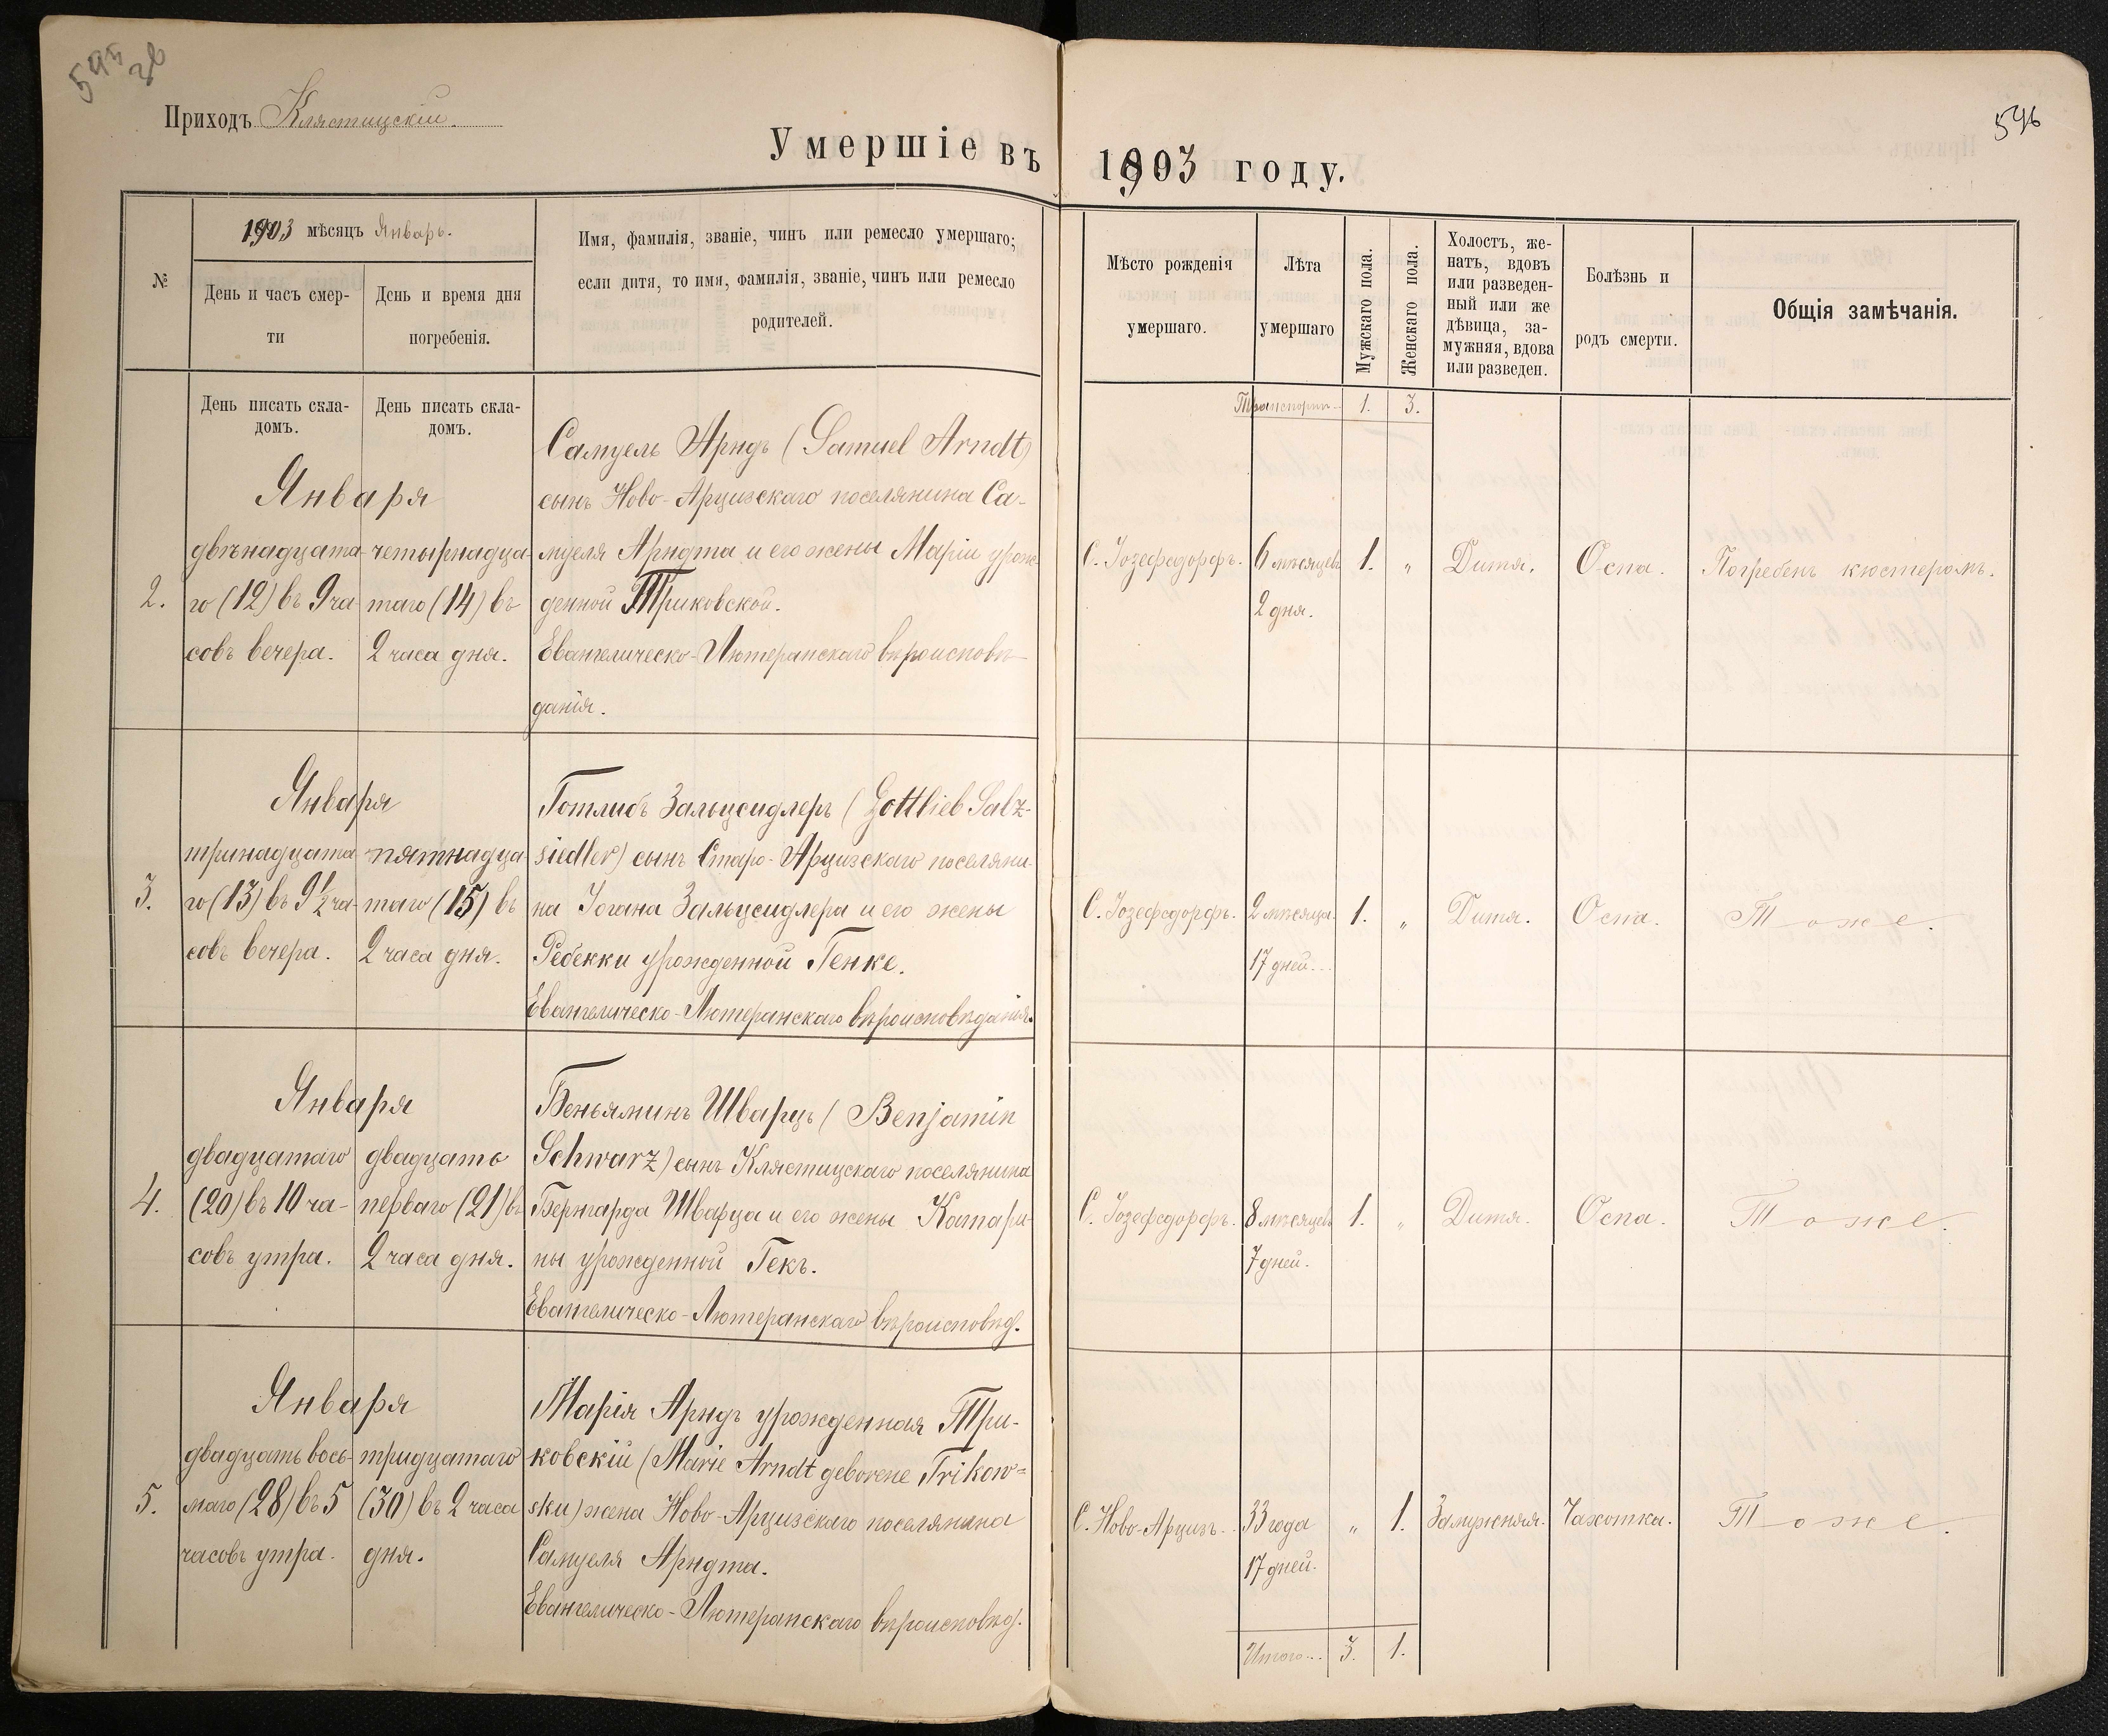 595 зв
596
Приходъ Клястицскій.
Умершіе въ 1903 году.
№
1903 мѣсяцъ Январь.
День и часъ смер-
ти
День и время дня
погребенія.
Имя, фамилія, званіе, чинъ или ремесло умершаго;
если дитя, то имя, фамилія, званіе, чинъ или ремесло
родителей.
Мѣсто рожденія
умершаго.
Лѣта
умершаго
Мужскаго пола.
Женскаго пола.
Холостъ, же-
натъ, вдовъ
или разведен-
ный или же
дѣвица, за-
мужняя, вдова
или разведен.
Болѣзнь и
родъ смерти.
Общія замѣчанія.
День писать скла-
домъ.
День писать скла-
домъ.
Транспортъ... 1. 3.
2.
Января
двѣнадцата-
го (12) въ 9 ча
совъ вечера.
четырнадца-
таго (14) въ
2 часа дня.
Самуель Арндъ (Samuel Arndt)
сынъ Ново-Арцизскаго поселянина Са-
муеля Арндта и его жены Маріи урож-
денной Триковской.
Евангелическо-Лютеранскаго вѣроисповѣ-
данія.
С. Іозефсдорфъ.
6 мѣсяцевъ
2 дня.
1.
"
Дитя.
Оспа.
Погребенъ кюстеромъ.
3.
Января
тринадцата
го (13) въ 9 1/2 ча-
совъ вечера.
пятнадца
таго (15) въ
2 часа дня.
Готлибъ Зальцсидлеръ (Gottlieb Salz-
siedler) сынъ Старо-Арцизскаго поселяни-
на Іогана Зальцсидлера и его жены
Ребекки урожденной Генке.
Евангелическо-Лютеранскаго вѣроисповѣданія.
С. Іозефсдорфъ.
2 мѣсяца
17 дней...
1.
"
Дитя.
Оспа.
Тоже.
4.
Января
двадцатаго
(20) въ 10 ча-
совъ утра.
двадцать
перваго (21) въ
2 часа дня.
Беньяминъ Шварцъ (Benjamin
Schwarz) сынъ Клястицскаго поселянина
Бернгарда Шварца и его жены Катари-
ны урожденной Гекъ.
Евангелическо-Лютеранскаго вѣроисповѣд.
С. Іозефсдорфъ.
8 мѣсяцевъ
7 дней.
1.
"
Дитя.
Оспа.
Тоже.
5.
Января
двадцать вось-
маго (28) въ 5
часовъ утра.
тридцатаго
(30) въ 2 часа
дня.
Марія Арндъ урожденная Три-
ковскій (Marie Arndt geborene Trikow=
sku) жена Ново-Арцизскаго поселянина
Самуеля Арндта.
Евангелическо-Лютеранскаго вѣроисповѣд.
С. Ново-Арцизъ.
33 года
17 дней.
"
1.
Замужняя.
Чахотка.
Тоже.
Итого... 3. 1.